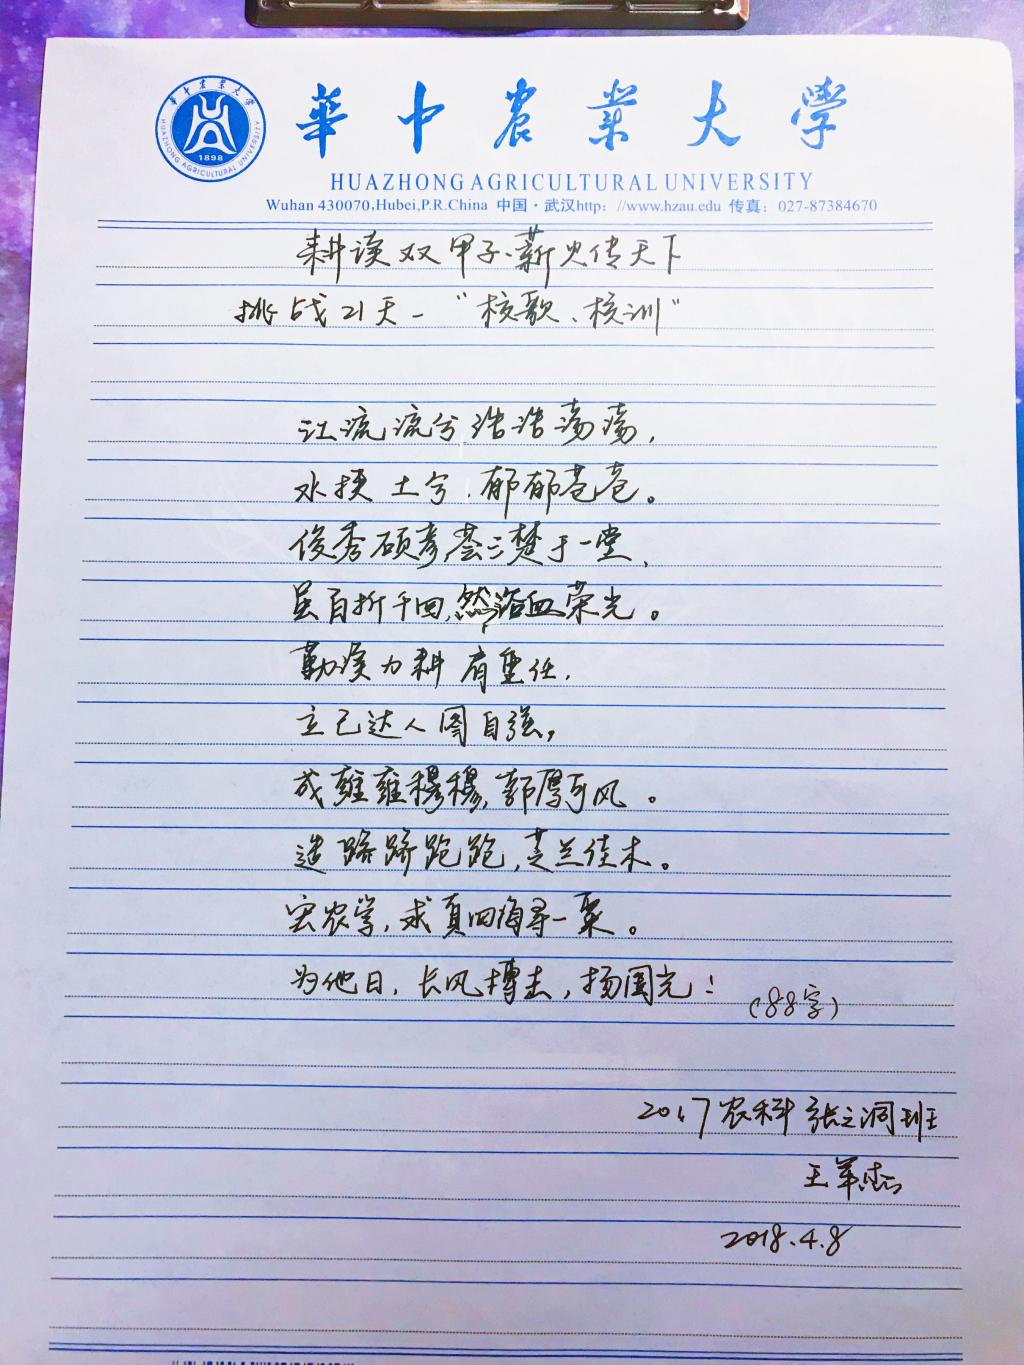 華中農業大學
HUAZHONG AGRICULTURAL UNIVERSITY
1898
華中農業大學
HUAZHONG AGRICULTURAL UNIVERSITY
Wuhan 430070,Hubei,P.R.China 中国·武汉http: //www.hzau.edu 传真: 027-87384670
耕读双甲子、薪火传天下
挑战21天-"校歌、校训"
江流流兮浩浩荡荡,
水挟土兮,郁郁苍苍。
俊秀硕彦,荟三楚于一堂,
虽百折千回,然浴血荣光。
勤读力耕肩重任,
立己达人图自强,
成雍雍穆穆,郭厚可风。
造跻跻跄跄,芝兰佳木。
宏农学,求真四海寻一聚。
为他日,长风搏击,扬国光!
(88字)
2017农科张之洞班
王军杰
2018.4.8